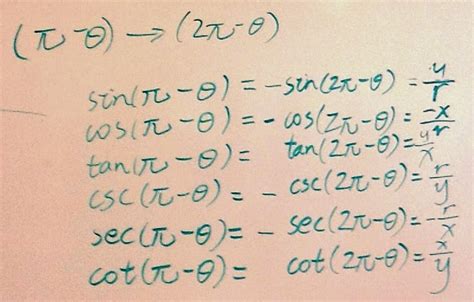 (π-θ) → (2π-θ)
sin(π-θ) = -sin(2π-θ) = y/r
cos(π-θ) = -cos(2π-θ) = -x/r
tan(π-θ) = tan(2π-θ) = y/x
csc(π-θ) = - csc(2π-θ) = r/y
sec(π-θ) = - sec(2π-θ) = -r/x
cot(π-θ) = cot(2π-θ) = x/y